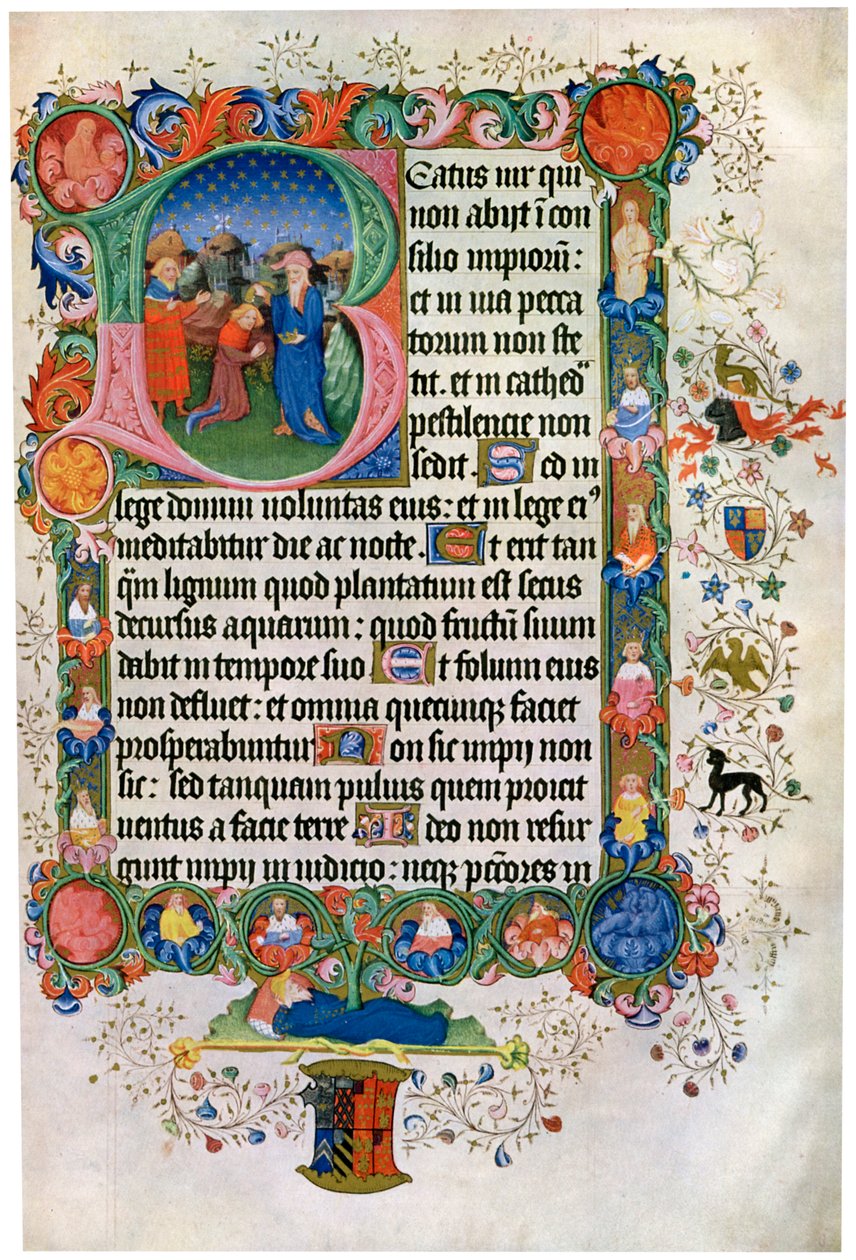 Beatus uir qui
non abijt ī con
silio impiorū :
et in uia pecca
torum non ste
tit. et in cathedᵃ
pestilencie non
sedit. Sed in
lege domini uoluntas eius: et in lege eiꝰ
meditabitur die ac nocte. Et erit tan
q̄m lignum quod plantatum est secus
decursus aquarum: quod fructū suum
dabit in tempore suo Et folium eius
non defluet: et omnia quecunqꝫ faciet
prosperabuntur Non sic impij non
sic: sed tanquam puluis quem proicit
uentus a facie terre Ideo non resur
gunt impij in iudicio: neqꝫ pc̄cores in